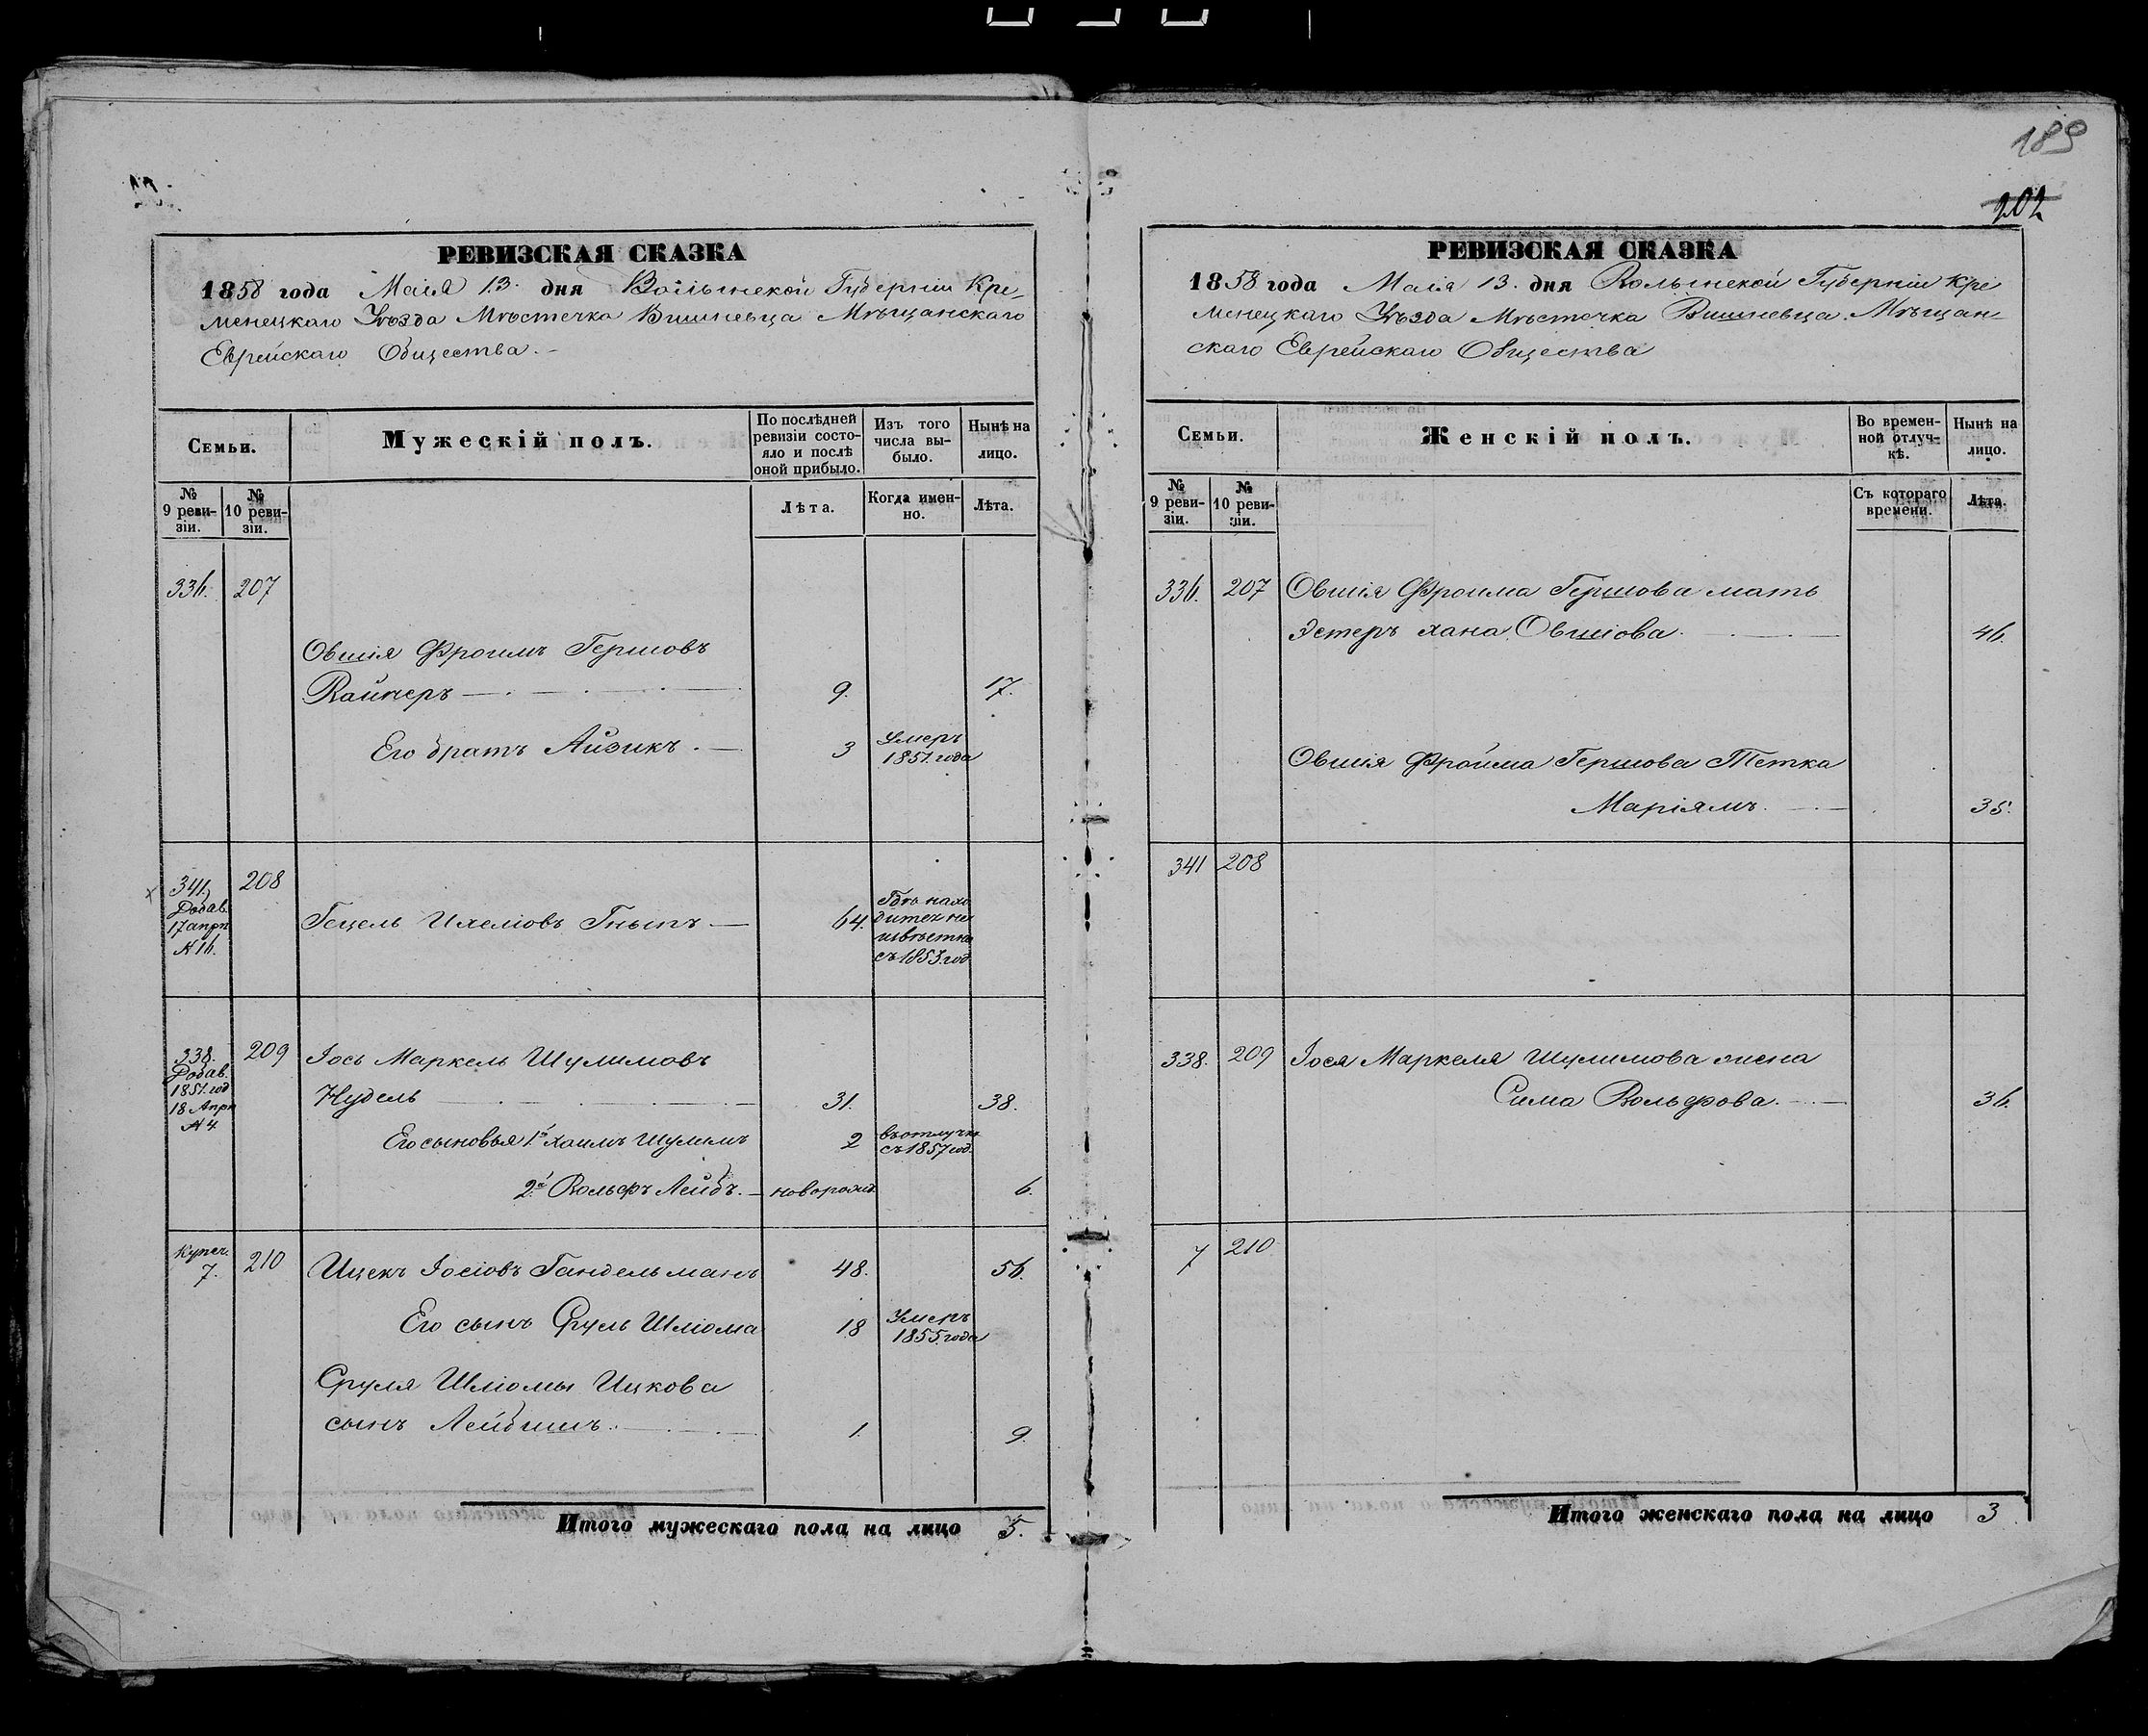 189
202
РЕВИЗСКАЯ СКАЗКА
1858 года Маія 13. дня Волынской Губерніи Кре-
менецкаго Уѣзда Мѣстечка Вишневца Мѣщанскаго
Еврейскаго Общества.-
Семьи.
Мужескій полъ.
По послѣдней
ревизіи состо-
яло и послѣ
оной прибыло.
Изъ того
числа вы-
было.
Нынѣ на
лицо.
№
9 реви-
зіи.
№
10 реви-
зіи.
Лѣта.
Когда имен-
но.
Лѣта.
336. 207
Овшія Фроимъ Гершовъ
Вайнеръ 9. 17.
Его братъ Айзикъ. 3 Умеръ
1851. года
341, 208
Добав.
17 апрѣл
№ 16.
Гецель Ихеліовъ Гнипъ 64. Гдѣ нахо
дится не
извѣстно
съ 1853. год
338. 209 Іось Маркель Шулимовъ
Добав.
1851. год
18 Апрѣ
№ 4
Нудель 31. 38.
Его сыновья 1й Хаимъ Шулимъ 2 въ отлучкѣ
съ 1857 год.
2й Вольфъ Лейбъ. новорожд. 6.
Купеч.
7. 210 Ицекъ Іосіовъ Гандельманъ 48. 56.
Его сынъ Сруль Шліома 18 Умеръ
1855. года
Сруля Шліомы Ицкова
сынъ Лейбишъ. 1. 9.
Итого мужескаго пола на лицо 5.
РЕВИЗСКАЯ СКАЗКА
1858 года Маія 13. дня Волынской Губерніи Кре
менецкаго Уѣзда Мѣстечка Вишневца Мѣщан-
скаго Еврейскаго Общества
Семьи.
Женскій полъ.
Во времен-
ной отлуч-
кѣ.
Нынѣ на
лицо.
№
9 реви-
зіи.
№
10 реви-
зіи.
Съ котораго
времени.
Лѣта.
336. 207 Овшія Фроима Гершова мать
Эстеръ Хана Овшіова. 46.
Овшія Фройма Гершова Тетка
Маріямъ. 35.
341 208
338. 209 Іося Маркеля Шулимова жена
Сима Вольфова. 36.
7 210
Итого женскаго пола на лицо 3